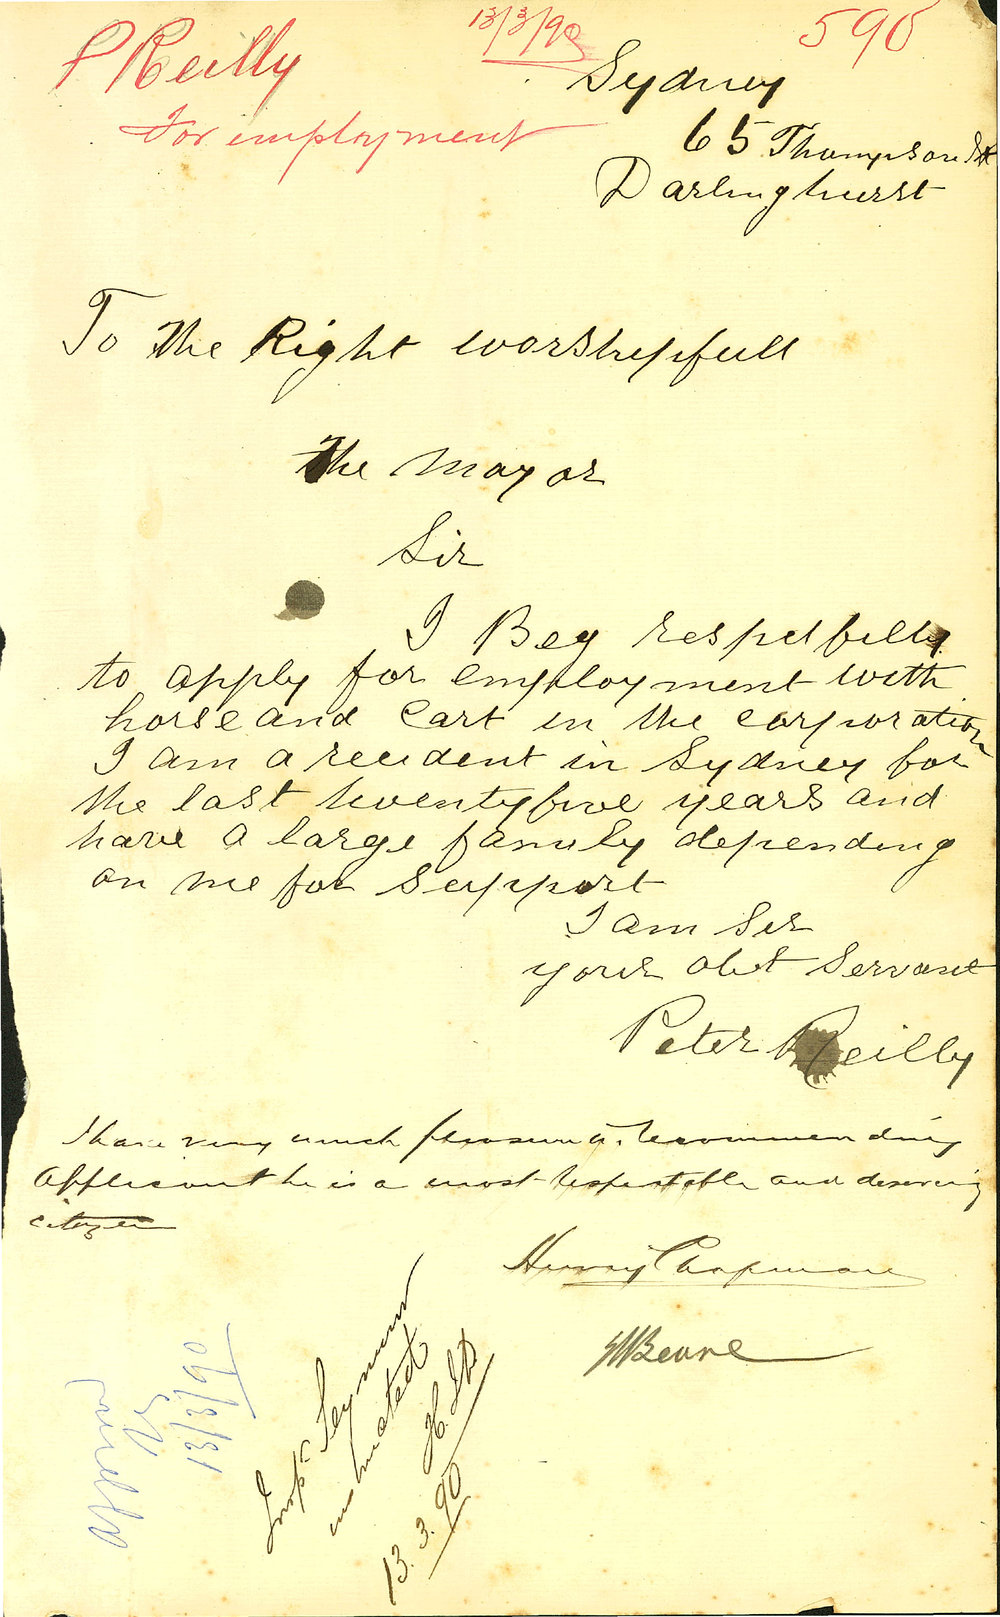 P Reilly
13/3/90
590
For employment
Sydney
65 Thompson St
Darlinghurst
To the Right worshipfull
The Mayor
Sir
I Beg respetfully
to apply for employment with
horse and Cart in the corporation
I am a recident in Sydney for
the last twentyfive years and
have a large family depending
on me for support
I am Sir
your obt Servant
Peter Reilly
I have very much pleasure in recommending
applicant he is a most respectable and deserving
citizen
Henry Chapman
Beare
Inspr Seymour
instructed
13.3.90
13/3/90